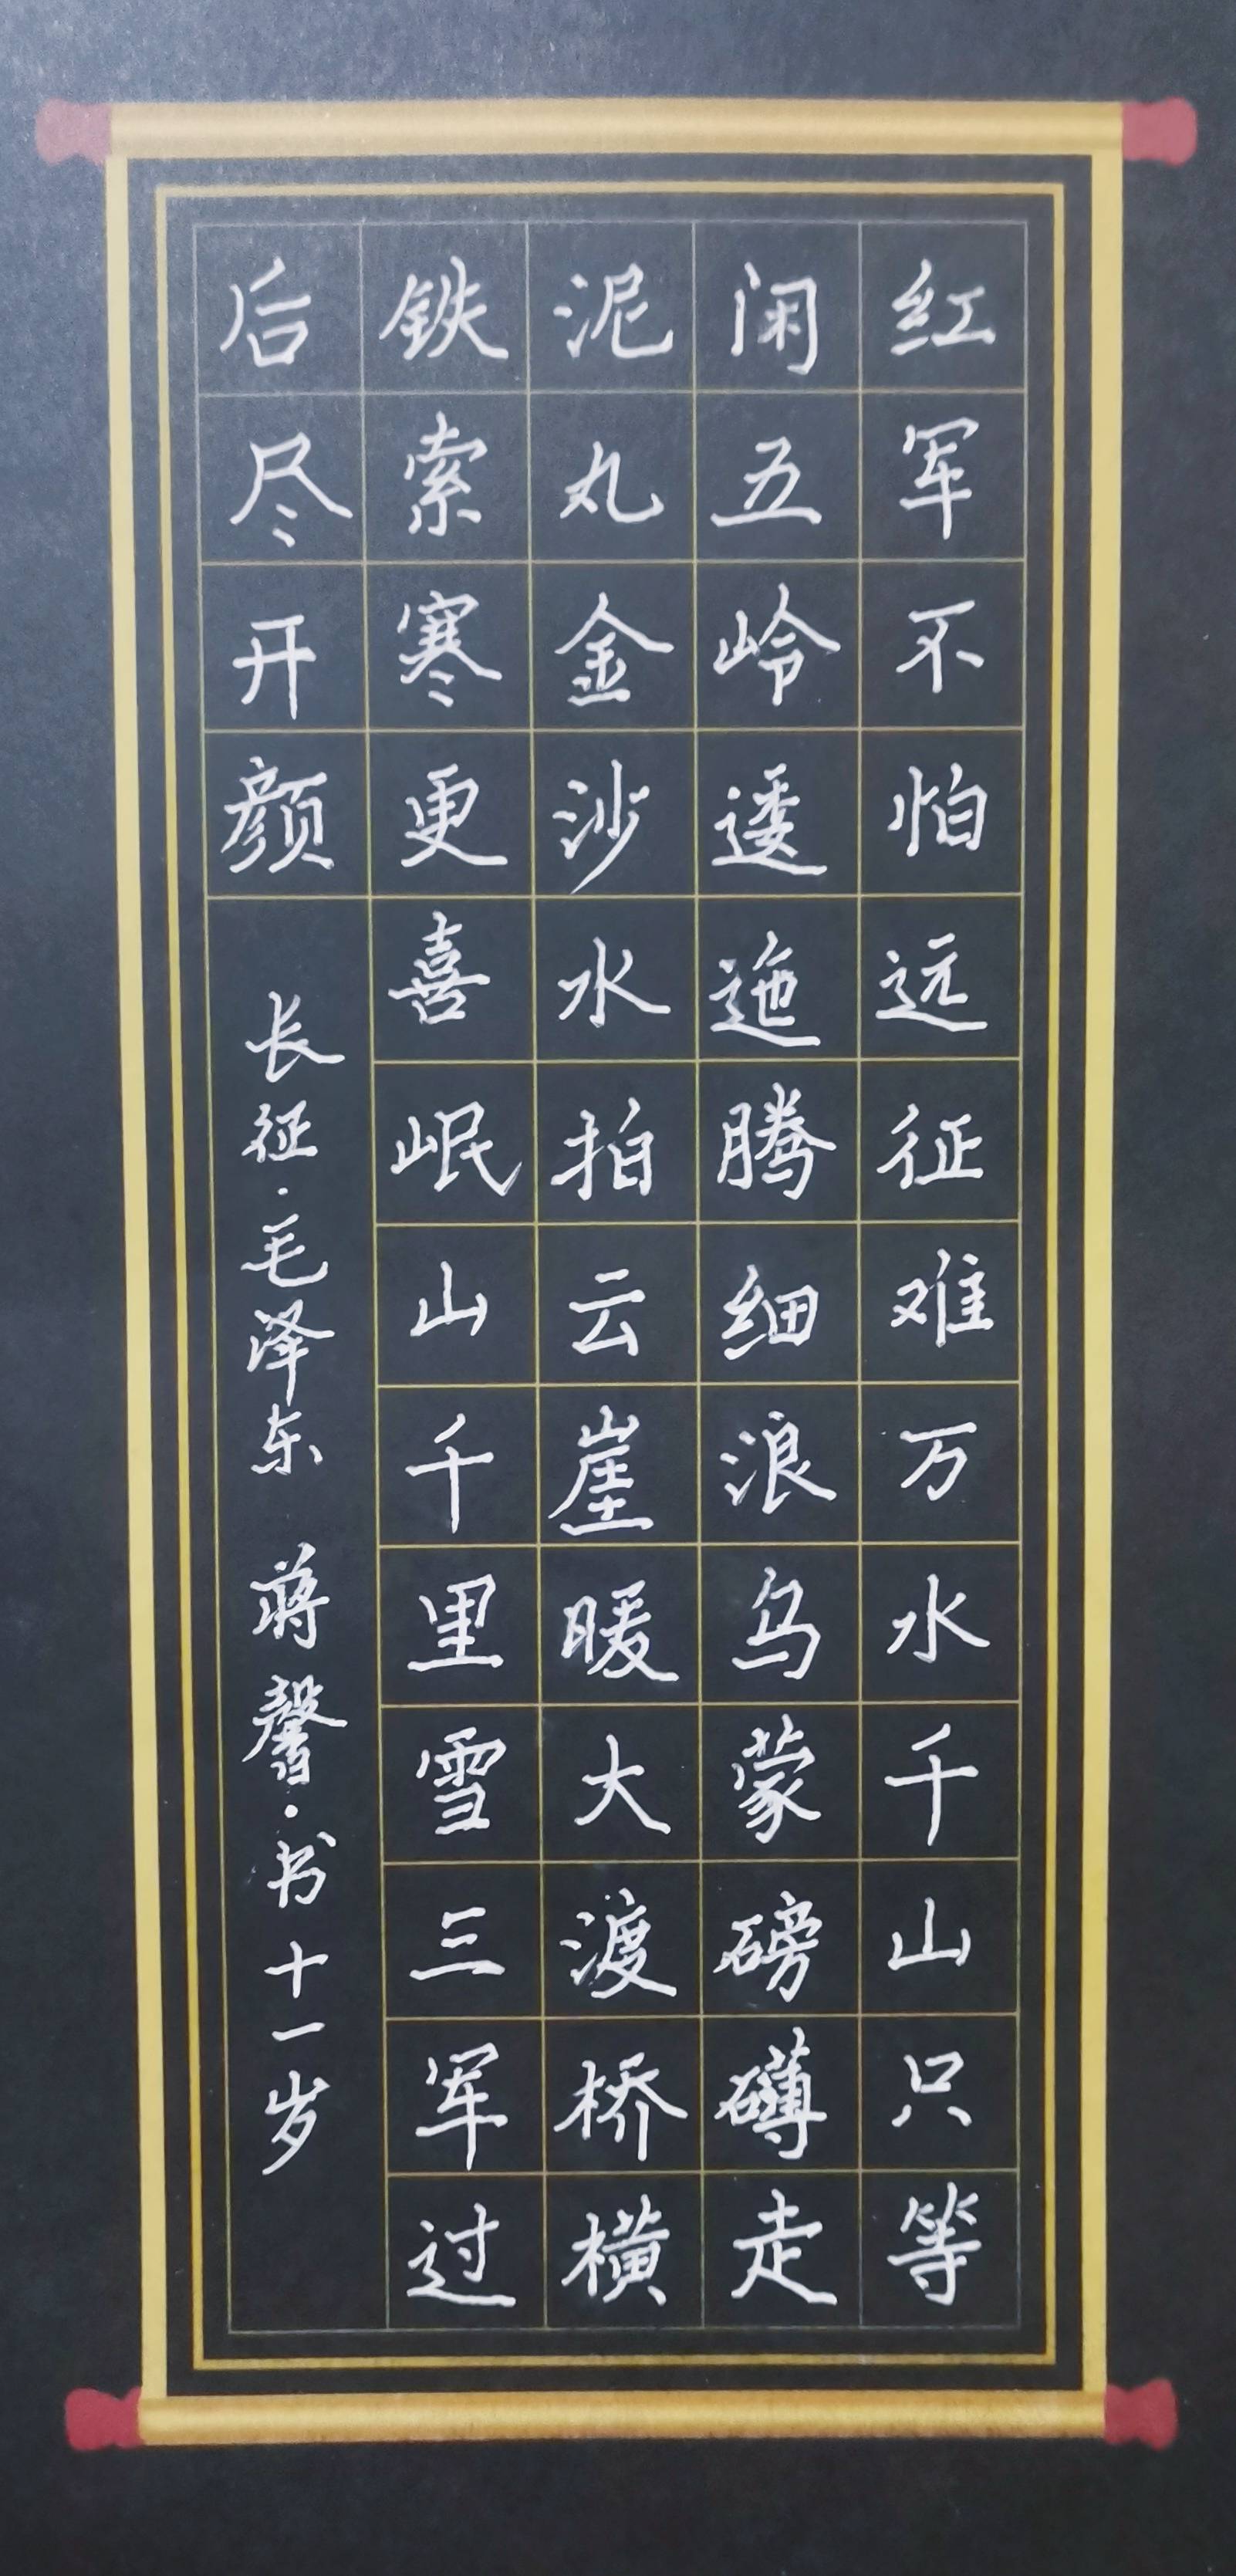 红军不怕远征难万水千山只等
闲五岭逶迤腾细浪乌蒙磅礴走
泥丸金沙水拍云崖暖大渡桥横
铁索寒更喜岷山千里雪三军过
后尽开颜
长征·毛泽东 蒋馨·书 十一岁